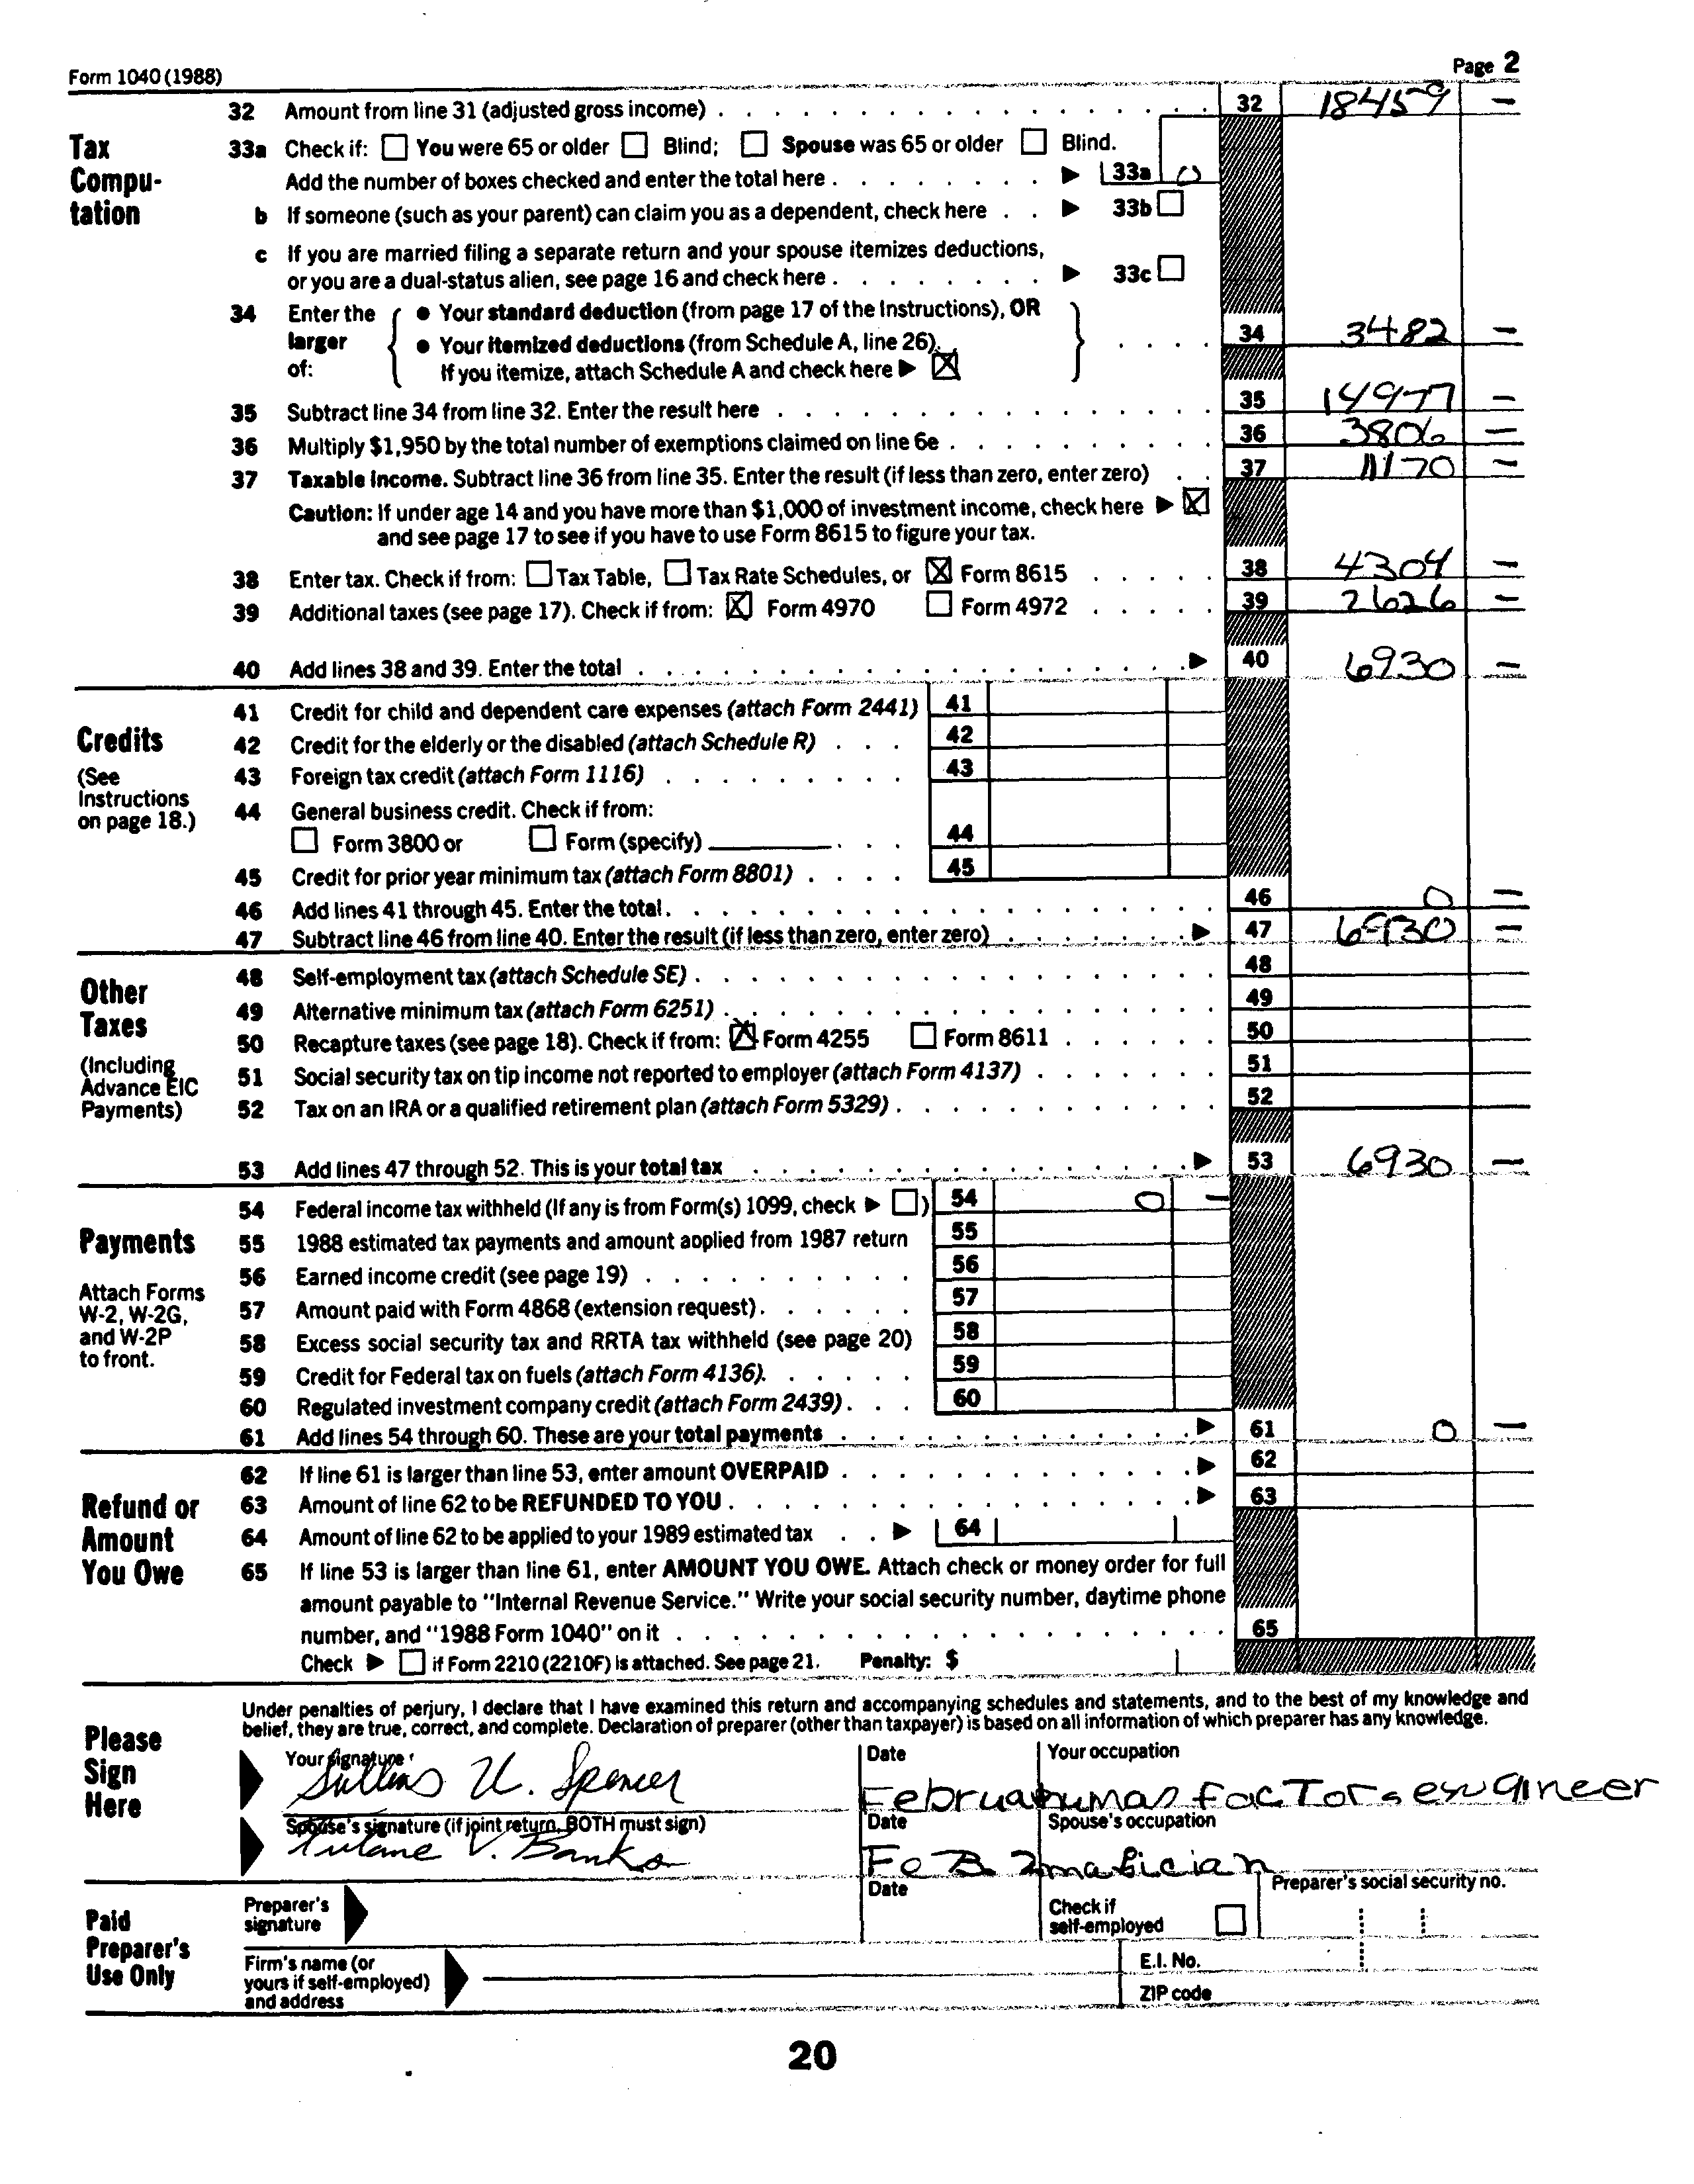 Form 1040 (1988) Page 2
32 Amount from line 31 (adjusted gross income) . . . 32 18459 —
Tax Compu-tation
33a Check if: ☐ You were 65 or older ☐ Blind; ☐ Spouse was 65 or older ☐ Blind.
Add the number of boxes checked and enter the total here . . . ▶ 33a 0
b If someone (such as your parent) can claim you as a dependent, check here . . ▶ 33b ☐
c If you are married filing a separate return and your spouse itemizes deductions,
or you are a dual-status alien, see page 16 and check here . . . ▶ 33c ☐
34 Enter the larger of: { ● Your standard deduction (from page 17 of the Instructions), OR
● Your itemized deductions (from Schedule A, line 26). } . . . . 34 3482 —
If you itemize, attach Schedule A and check here ▶ ☒
35 Subtract line 34 from line 32. Enter the result here . . . 35 14977 —
36 Multiply $1,950 by the total number of exemptions claimed on line 6e . . . 36 3806 —
37 Taxable income. Subtract line 36 from line 35. Enter the result (if less than zero, enter zero) . . 37 11170 —
Caution: If under age 14 and you have more than $1,000 of investment income, check here ▶ ☒
and see page 17 to see if you have to use Form 8615 to figure your tax.
38 Enter tax. Check if from: ☐ Tax Table, ☐ Tax Rate Schedules, or ☒ Form 8615 . . . 38 4304 —
39 Additional taxes (see page 17). Check if from: ☒ Form 4970 ☐ Form 4972 . . . 39 2626 —
40 Add lines 38 and 39. Enter the total . . . ▶ 40 6930 —
Credits
(See Instructions on page 18.)
41 Credit for child and dependent care expenses (attach Form 2441) 41
42 Credit for the elderly or the disabled (attach Schedule R) . . . 42
43 Foreign tax credit (attach Form 1116) . . . 43
44 General business credit. Check if from:
☐ Form 3800 or ☐ Form (specify) ______ . . . 44
45 Credit for prior year minimum tax (attach Form 8801) . . . . 45
46 Add lines 41 through 45. Enter the total . . . 46 0 —
47 Subtract line 46 from line 40. Enter the result (if less than zero, enter zero) . . . ▶ 47 6930 —
Other Taxes
(Including Advance EIC Payments)
48 Self-employment tax (attach Schedule SE) . . . 48
49 Alternative minimum tax (attach Form 6251) . . . 49
50 Recapture taxes (see page 18). Check if from: ☒ Form 4255 ☐ Form 8611 . . . 50
51 Social security tax on tip income not reported to employer (attach Form 4137) . . . 51
52 Tax on an IRA or a qualified retirement plan (attach Form 5329) . . . 52
53 Add lines 47 through 52. This is your total tax . . . ▶ 53 6930 —
Payments
Attach Forms W-2, W-2G, and W-2P to front.
54 Federal income tax withheld (If any is from Form(s) 1099, check ▶ ☐) 54 0 —
55 1988 estimated tax payments and amount applied from 1987 return 55
56 Earned income credit (see page 19) . . . 56
57 Amount paid with Form 4868 (extension request) . . . 57
58 Excess social security tax and RRTA tax withheld (see page 20) 58
59 Credit for Federal tax on fuels (attach Form 4136). . . . 59
60 Regulated investment company credit (attach Form 2439) . . . 60
61 Add lines 54 through 60. These are your total payments . . . ▶ 61 0 —
Refund or Amount You Owe
62 If line 61 is larger than line 53, enter amount OVERPAID . . . ▶ 62
63 Amount of line 62 to be REFUNDED TO YOU . . . ▶ 63
64 Amount of line 62 to be applied to your 1989 estimated tax . . ▶ 64
65 If line 53 is larger than line 61, enter AMOUNT YOU OWE. Attach check or money order for full
amount payable to "Internal Revenue Service." Write your social security number, daytime phone
number, and "1988 Form 1040" on it . . . 65
Check ▶ ☐ if Form 2210 (2210F) is attached. See page 21. Penalty: $
Please Sign Here
Under penalties of perjury, I declare that I have examined this return and accompanying schedules and statements, and to the best of my knowledge and
belief, they are true, correct, and complete. Declaration of preparer (other than taxpayer) is based on all information of which preparer has any knowledge.
Your signature Date Your occupation
U. Spencer factors engineer
Spouse's signature (if joint return, BOTH must sign) Date Spouse's occupation
V. Banks FeB
Paid Preparer's Use Only
Preparer's signature Date Check if self-employed ☐ Preparer's social security no.
Firm's name (or yours if self-employed) and address E.I. No.
ZIP code
20